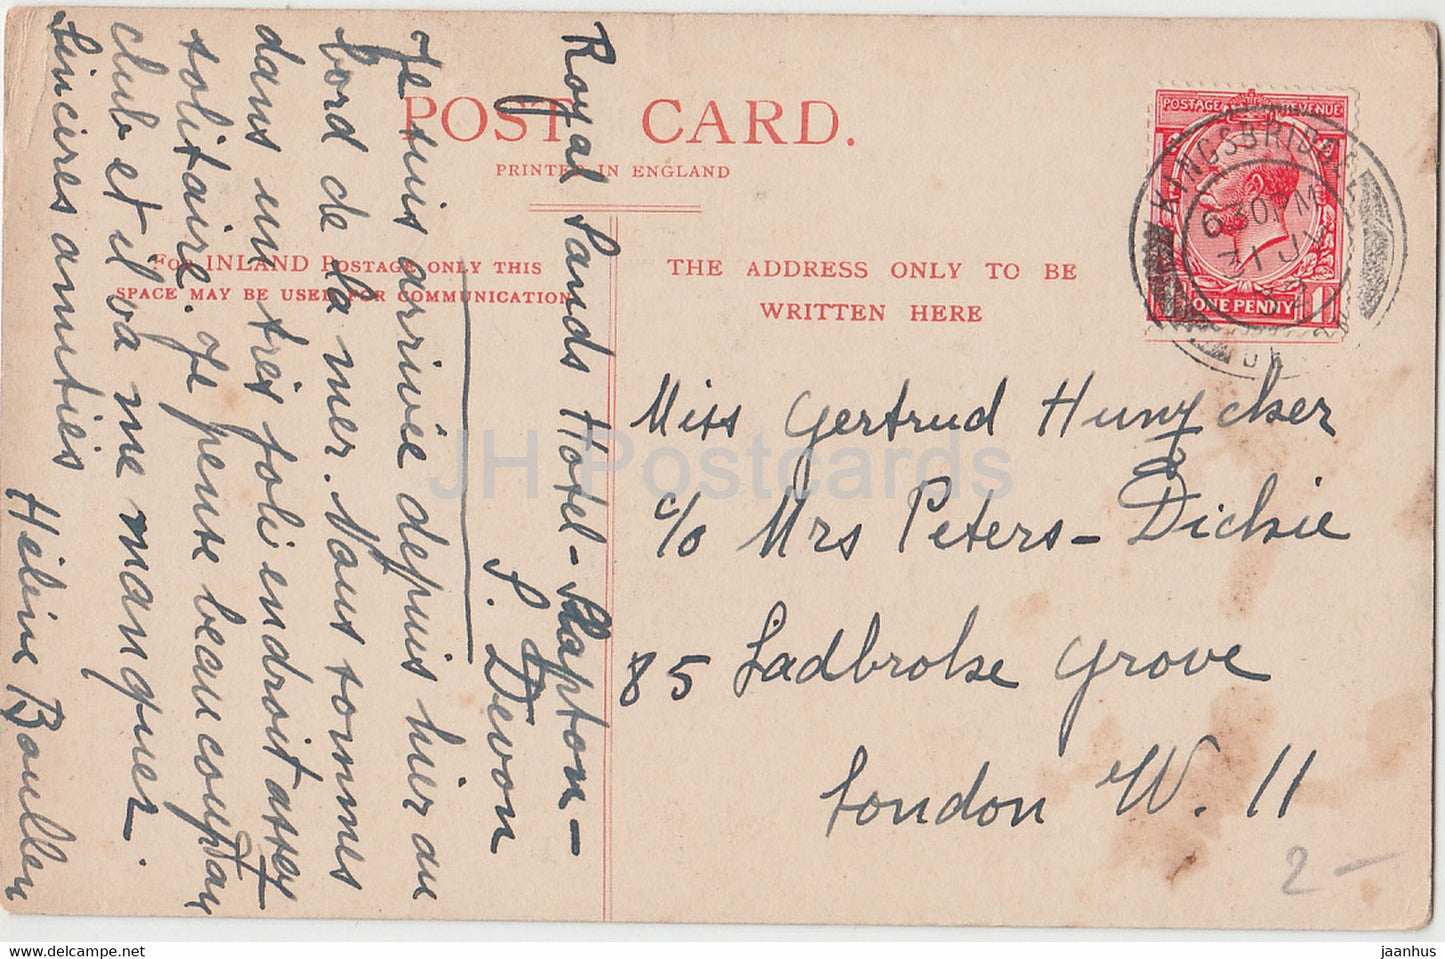 POST CARD.
PRINTED IN ENGLAND
FOR INLAND POSTAGE ONLY THIS
SPACE MAY BE USED FOR COMMUNICATION
THE ADDRESS ONLY TO BE
WRITTEN HERE
POSTAGE REVENUE
ONE PENNY
KINGSBRIDGE
6 30 PM
31 JY
32
Royal Sands Hotel - Slapton -
S. Devon
Je suis arrivée depuis hier au
bord de la mer. Nous sommes
dans un très joli endroit assez
solitaire. Je pense beaucoup au
club et il va me manquer.
Sincères amitiés
Hélène Boullen
Miss Gertrud Hunzcker
c/o Mrs Peters - Dickie
85 Ladbroke Grove
London W. 11
2 -
JH Postcards
www.delcampe.net
jaanhus